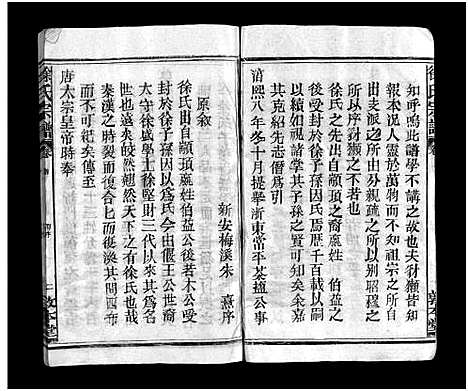 徐氏宗譜
知呼鳴此譜學不講之故也夫豺獺皆知
報本况人靈於萬物而不知祖宗之所自
出支派之所分世次親疏之所以別昭穆之
所以序豺獺之不若也
徐氏之先出自顓頊之裔嬴姓 伯益之
後封於徐子孫因氏焉歷千百載以
以續如視諸掌其子孫 可知矣余嘉
其克紹先志僭為引
淳熙八年冬十月提舉浙東常平茶鹽公事
新安梅溪朱 熹序
原叙
徐氏出自顓頊嬴姓伯益公後若木公受
封於徐子孫因以為氏今由偃王公世裔
太守徐盛學士徐堅財三代以來其為名
世也遠矣皎然翹然天下之有徐氏也哉
秦漢之時裂而復合而後渙其間四布
而不可紀矣傳至
唐太宗皇帝時奉
徐氏宗譜
敦本堂
敦本堂